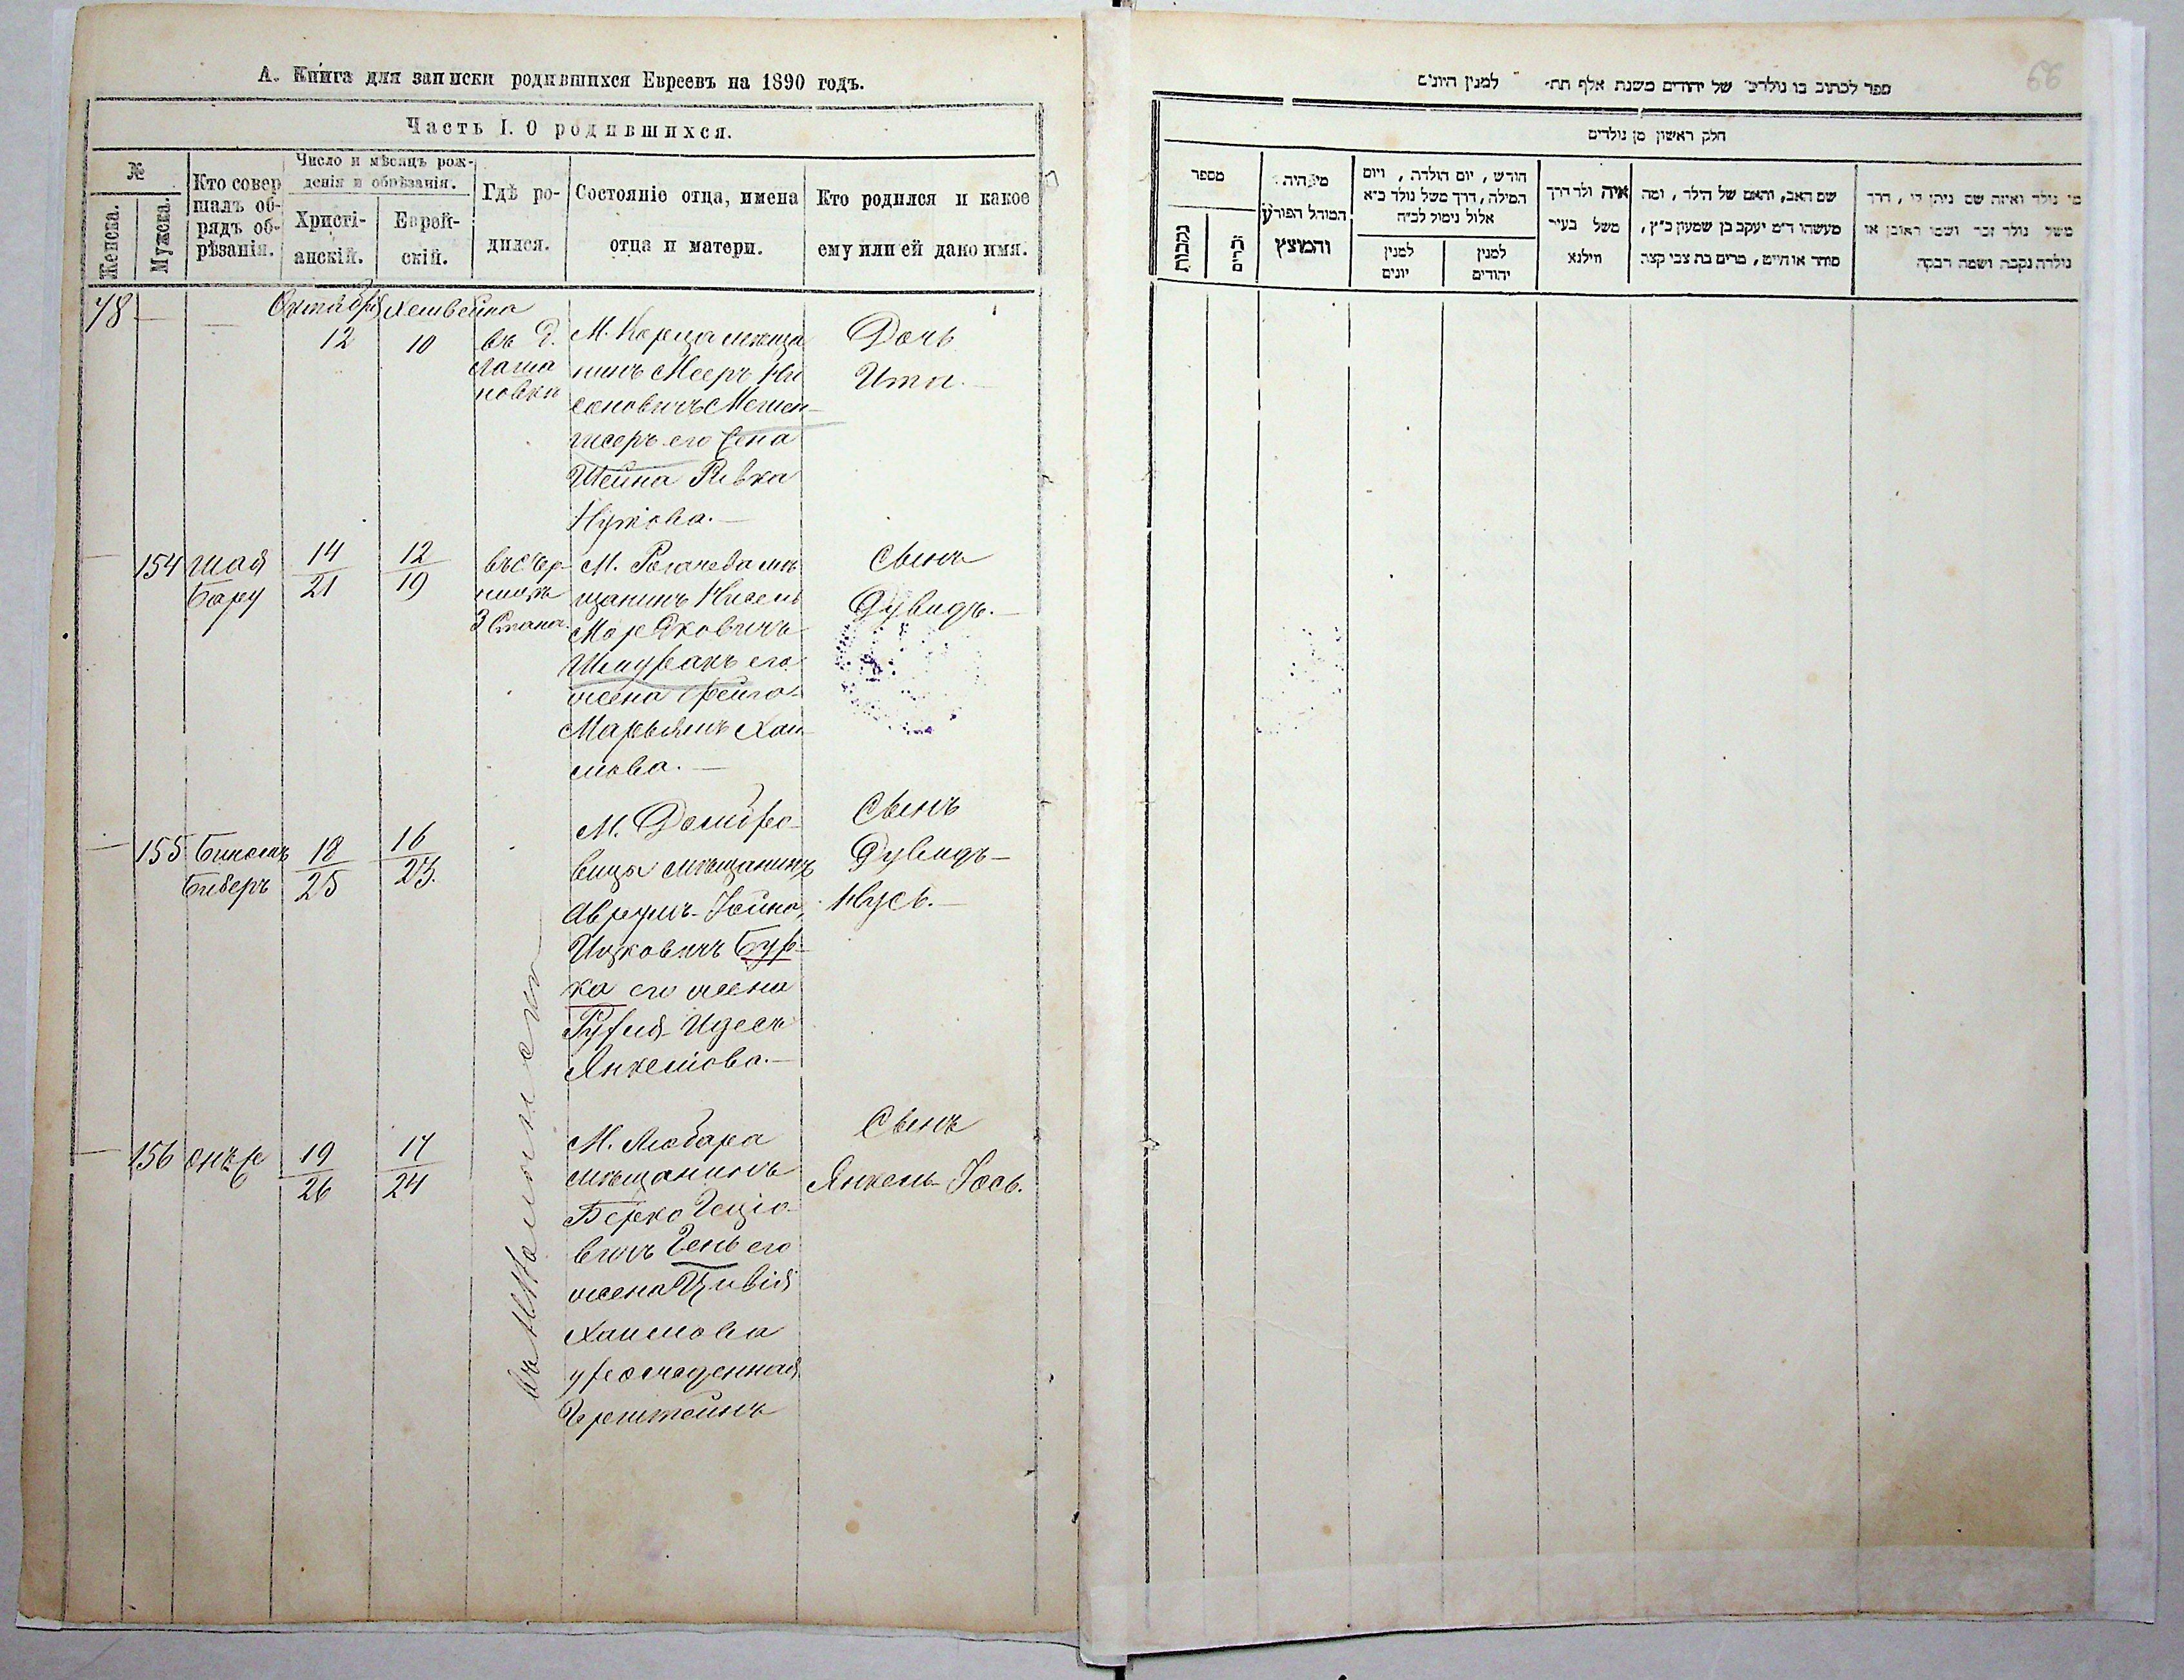 А. Книга для записки родившихся Евреевъ на 1890 годъ.
Часть I. О родившихся.
№
Женска.
Мужска.
Кто совер
шалъ об-
рядъ об-
рѣзанія.
Число и мѣсяцъ рож-
денія и обрѣзанія.
Христі-
анскій.
Еврей-
скій.
Гдѣ ро-
дился.
Состояніе отца, имена
отца и матери.
Кто родился и какое
ему или ей дано имя.
78
Октября Хешвейна
12
10
въ д.
М. Кореца мѣща
нинъ Мееръ Ни
его жена
Шейна Ривка
Дочь
Ита.
154
Шая
14
21
12
19
М. Рогачева мѣ
щанинъ Нисель
Мордковичъ
его
жена Фейга
Марьямъ Хаи
мова.
Сынъ
Дувидъ.
155
18
25
16
23.
М. Домбро
вицы мѣщанинъ
Аврумъ-Іойна
Ицковичъ Бур-
ка его жена
Рухля-Идесъ
Янкелева.
Сынъ
Дувидъ-
Нусь.
156
онъ же
19
26
17
24
М. Любара
мѣщанинъ
Берко
вичъ его
жена Цивія
Хаимова
урожденная
Сынъ
Янкель-Іось.
66
ספר לכתוב בו נולדים של יהודים משנת אלף תת׳ למנין היונים
חלק ראשון מן נולדים
מספר
נקבות
זכרים
מי היה
המוהל הפורע
והמוצץ
חודש, יום הולדה, ויום
המילה, דרך משל נולד כ״א
אלול נימול לכ״ח
למנין
יונים
למנין
יהודים
איה ולד דרך
משל בעיר
ווילנא
שם האב, והאם של הילד, ומה
מעשהו ד״מ יעקב בן שמעון כ״ץ,
סוחר או חייט, מרים בת צבי קצה
מי נולד ואיזה שם ניתן לו, דרך
משל נולד זכר ושמו ראובן או
נולדה נקבה ושמה רבקה